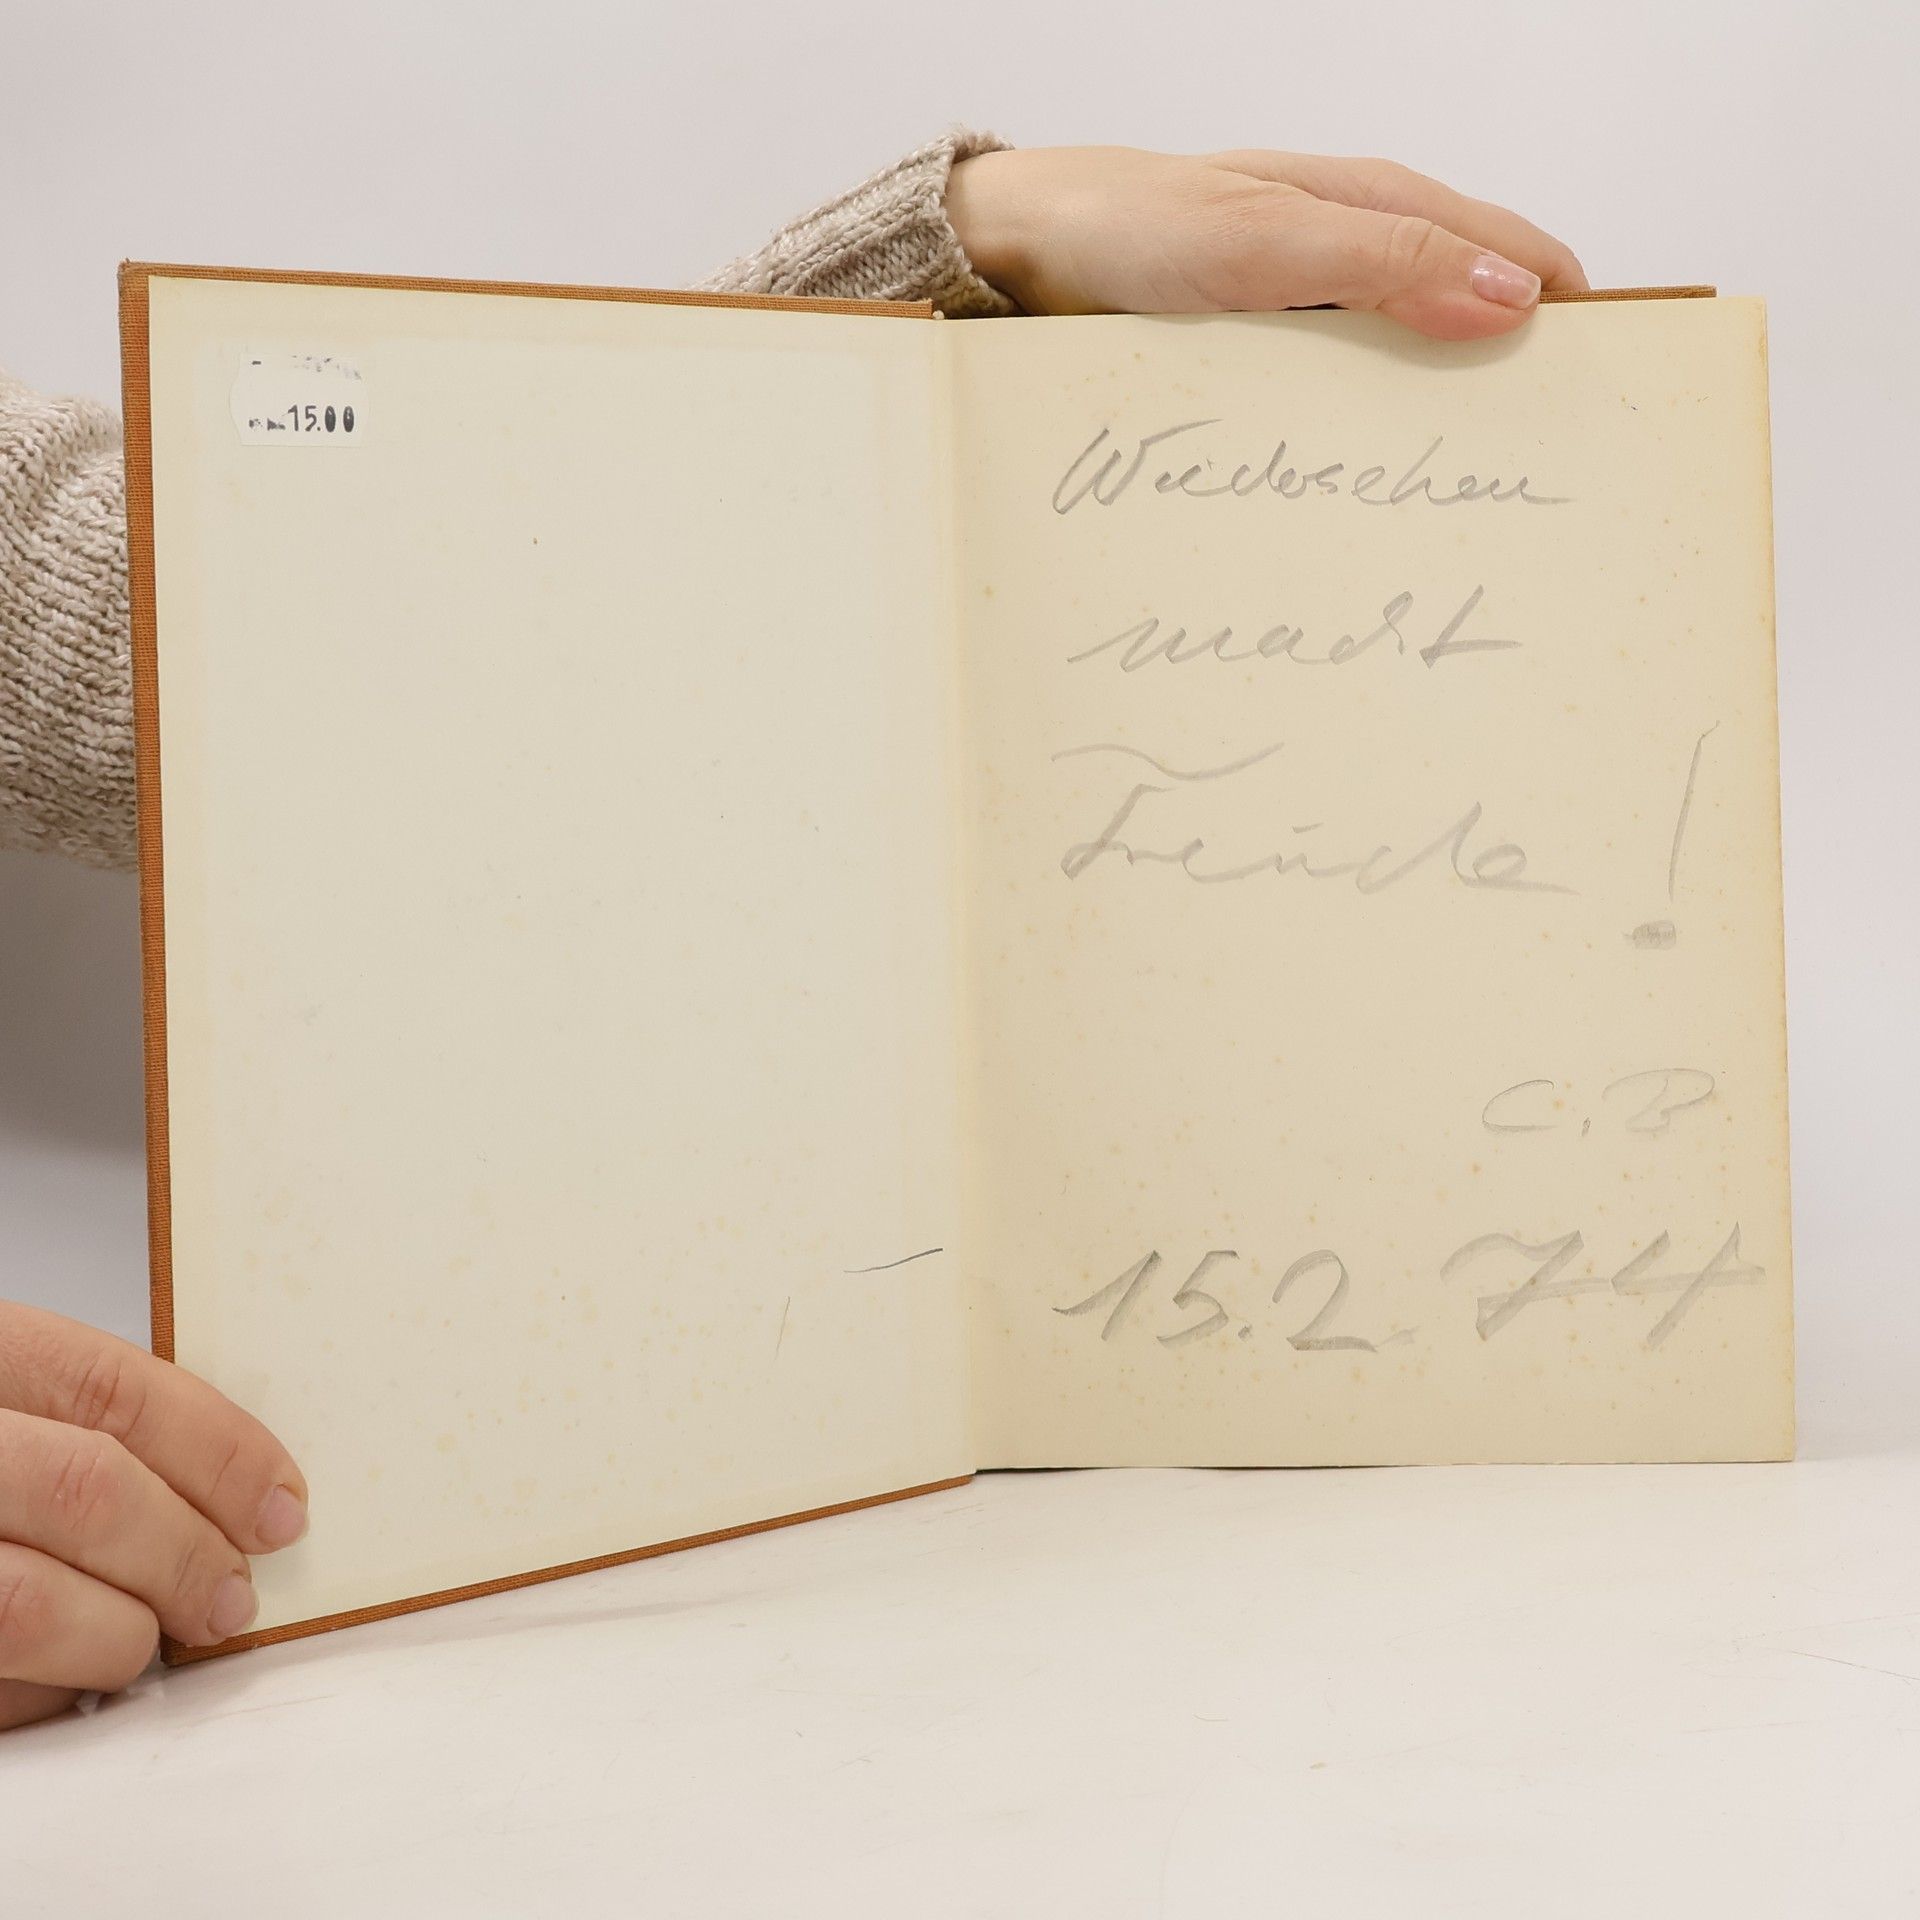 15.00
Wiedersehen
macht
Freude !
C. B
15.2 74